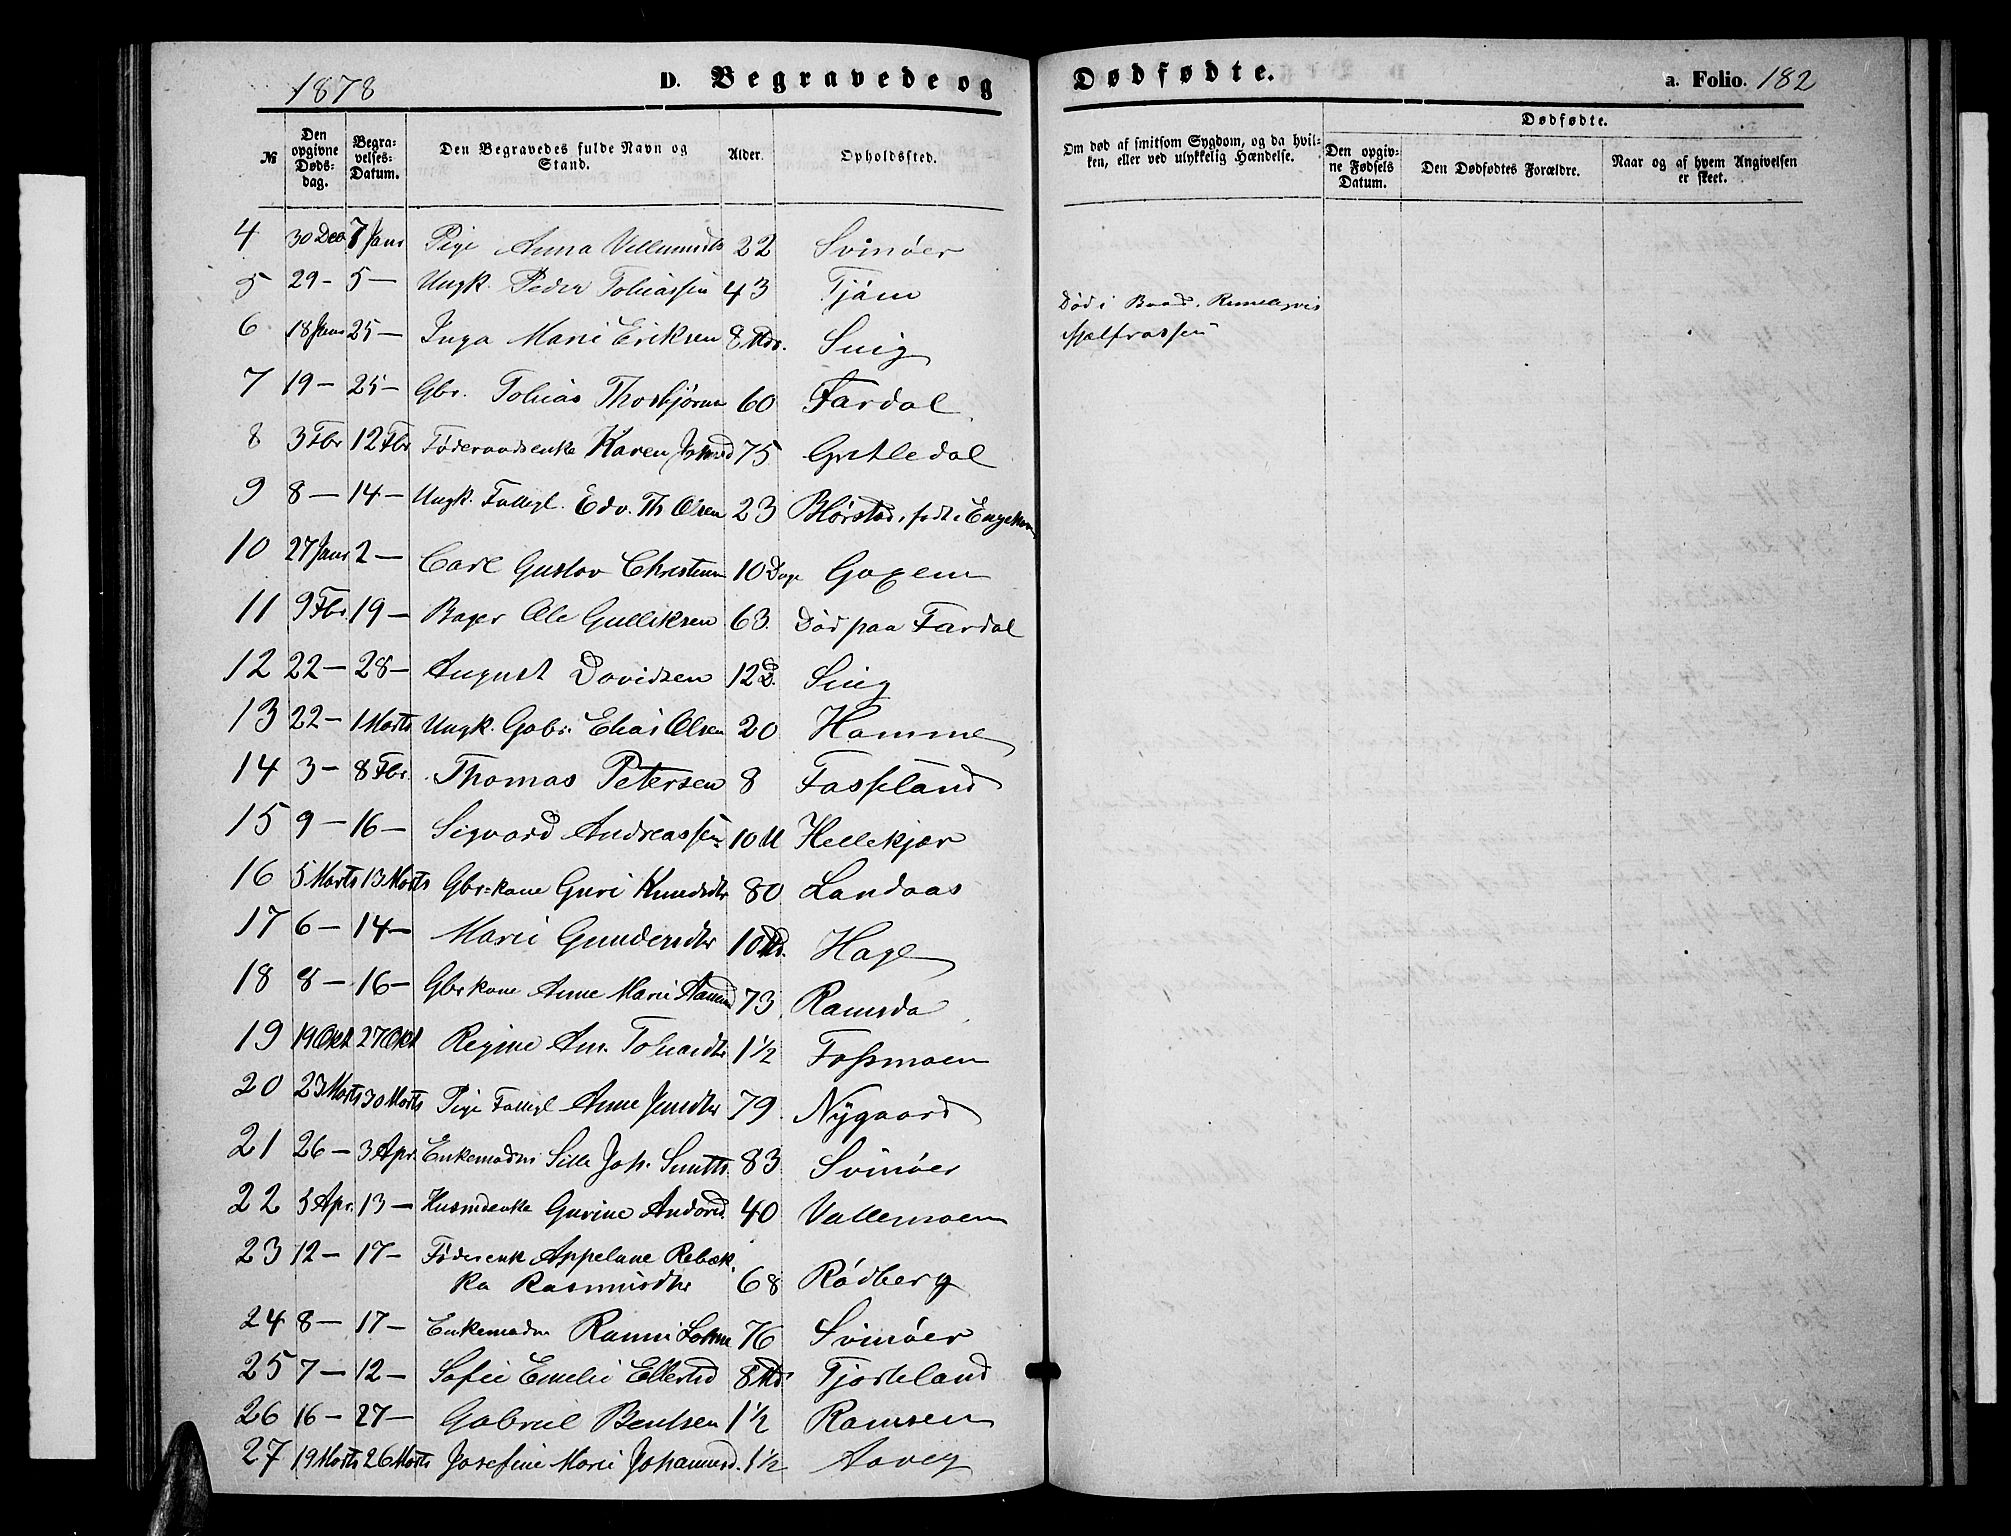 1878 D. Begravede og Dødfødte. a. Folio. 182
№ Den opgivne Døds-dag. Begra-velses-Datum. Den Begravedes fulde Navn og Stand. Alder. Opholdssted. Om død af smitsom Sygdom, og da hvil-ken, eller ved ulykkelig Hændelse. Dødfødte. Den opgiv-ne Fødsels Datum. Den Dødfødtes Forældre. Naar og af hvem Angivelsen er skeet.
4 30 Dec 7 Janr Pige Anna Villumsdtr 22 Svinøer
5 29 - 5 — Ungk. Peder Tobiassen 43 Tjøm Død i Baad.
6 18 Janr 25 — Inga Marie Eriksen 8 Mdr. Snig
7 19 — 25 — Gbr. Tobias Thorbjørnsen 60 Fardal
8 3 Fbr 12 Fbr Føderaadsenke Karen 75 Gretledal
9 8 — 14 — Ungk. Fattigl. Edv. Th Olsen 23 født i
10 27 Janr 2 — Carl Gustav Christensen 10 Dage Goxem
11 9 Fbr. 19 — Bager Ole Gulliksen 63. Død paa Fardal
12 22 — 28 — August Davidsen 12 D. Snig
13 22 — 1 Marts Ungk. Gabr. Elias Olsen 20 Homme
14 3 — 8 Fbr. Thomas Petersen 8 Fasseland
15 9 — 16 — Sigvard Andreassen 10 M Hellekjær
16 5 Marts 13 Marts Gbr=kone Guri Knudsdtr 80 Landaas
17 6 — 14 — Marie Gundersdtr 10 Md. Hage
18 8 — 16 — Gbrkone Anne Marie 73 Ramsda
19 19 Okt 27 Okt Regine An. Tobiasdtr 1½ Fossmoen
20 23 Marts 30 Marts Pige Fattigl Anne Jensdtr 79. Nygaard
21 26 — 3 Apr. Enkemadm Sille Joh. 83 Svinøer
22 5 Apr. 13 — Husmdenke Gurine Andersd. 40 Vallemoen
23 12 — 17 — Føderenk Appelone Rebek
ka Rasmusdtr 68 Rødberg
24 8 — 17 — Enkemadm Ranni 76 Svinøer
25 7 — 12 — Sofie Emelie Ellertsd 8 Md. Tjosteland
26 16 — 27 — Gabriel Bentsen 1½ Ramsen
27 19 Marts 26 Marts Josefine Marie Johannesd. 1½ Aaveg